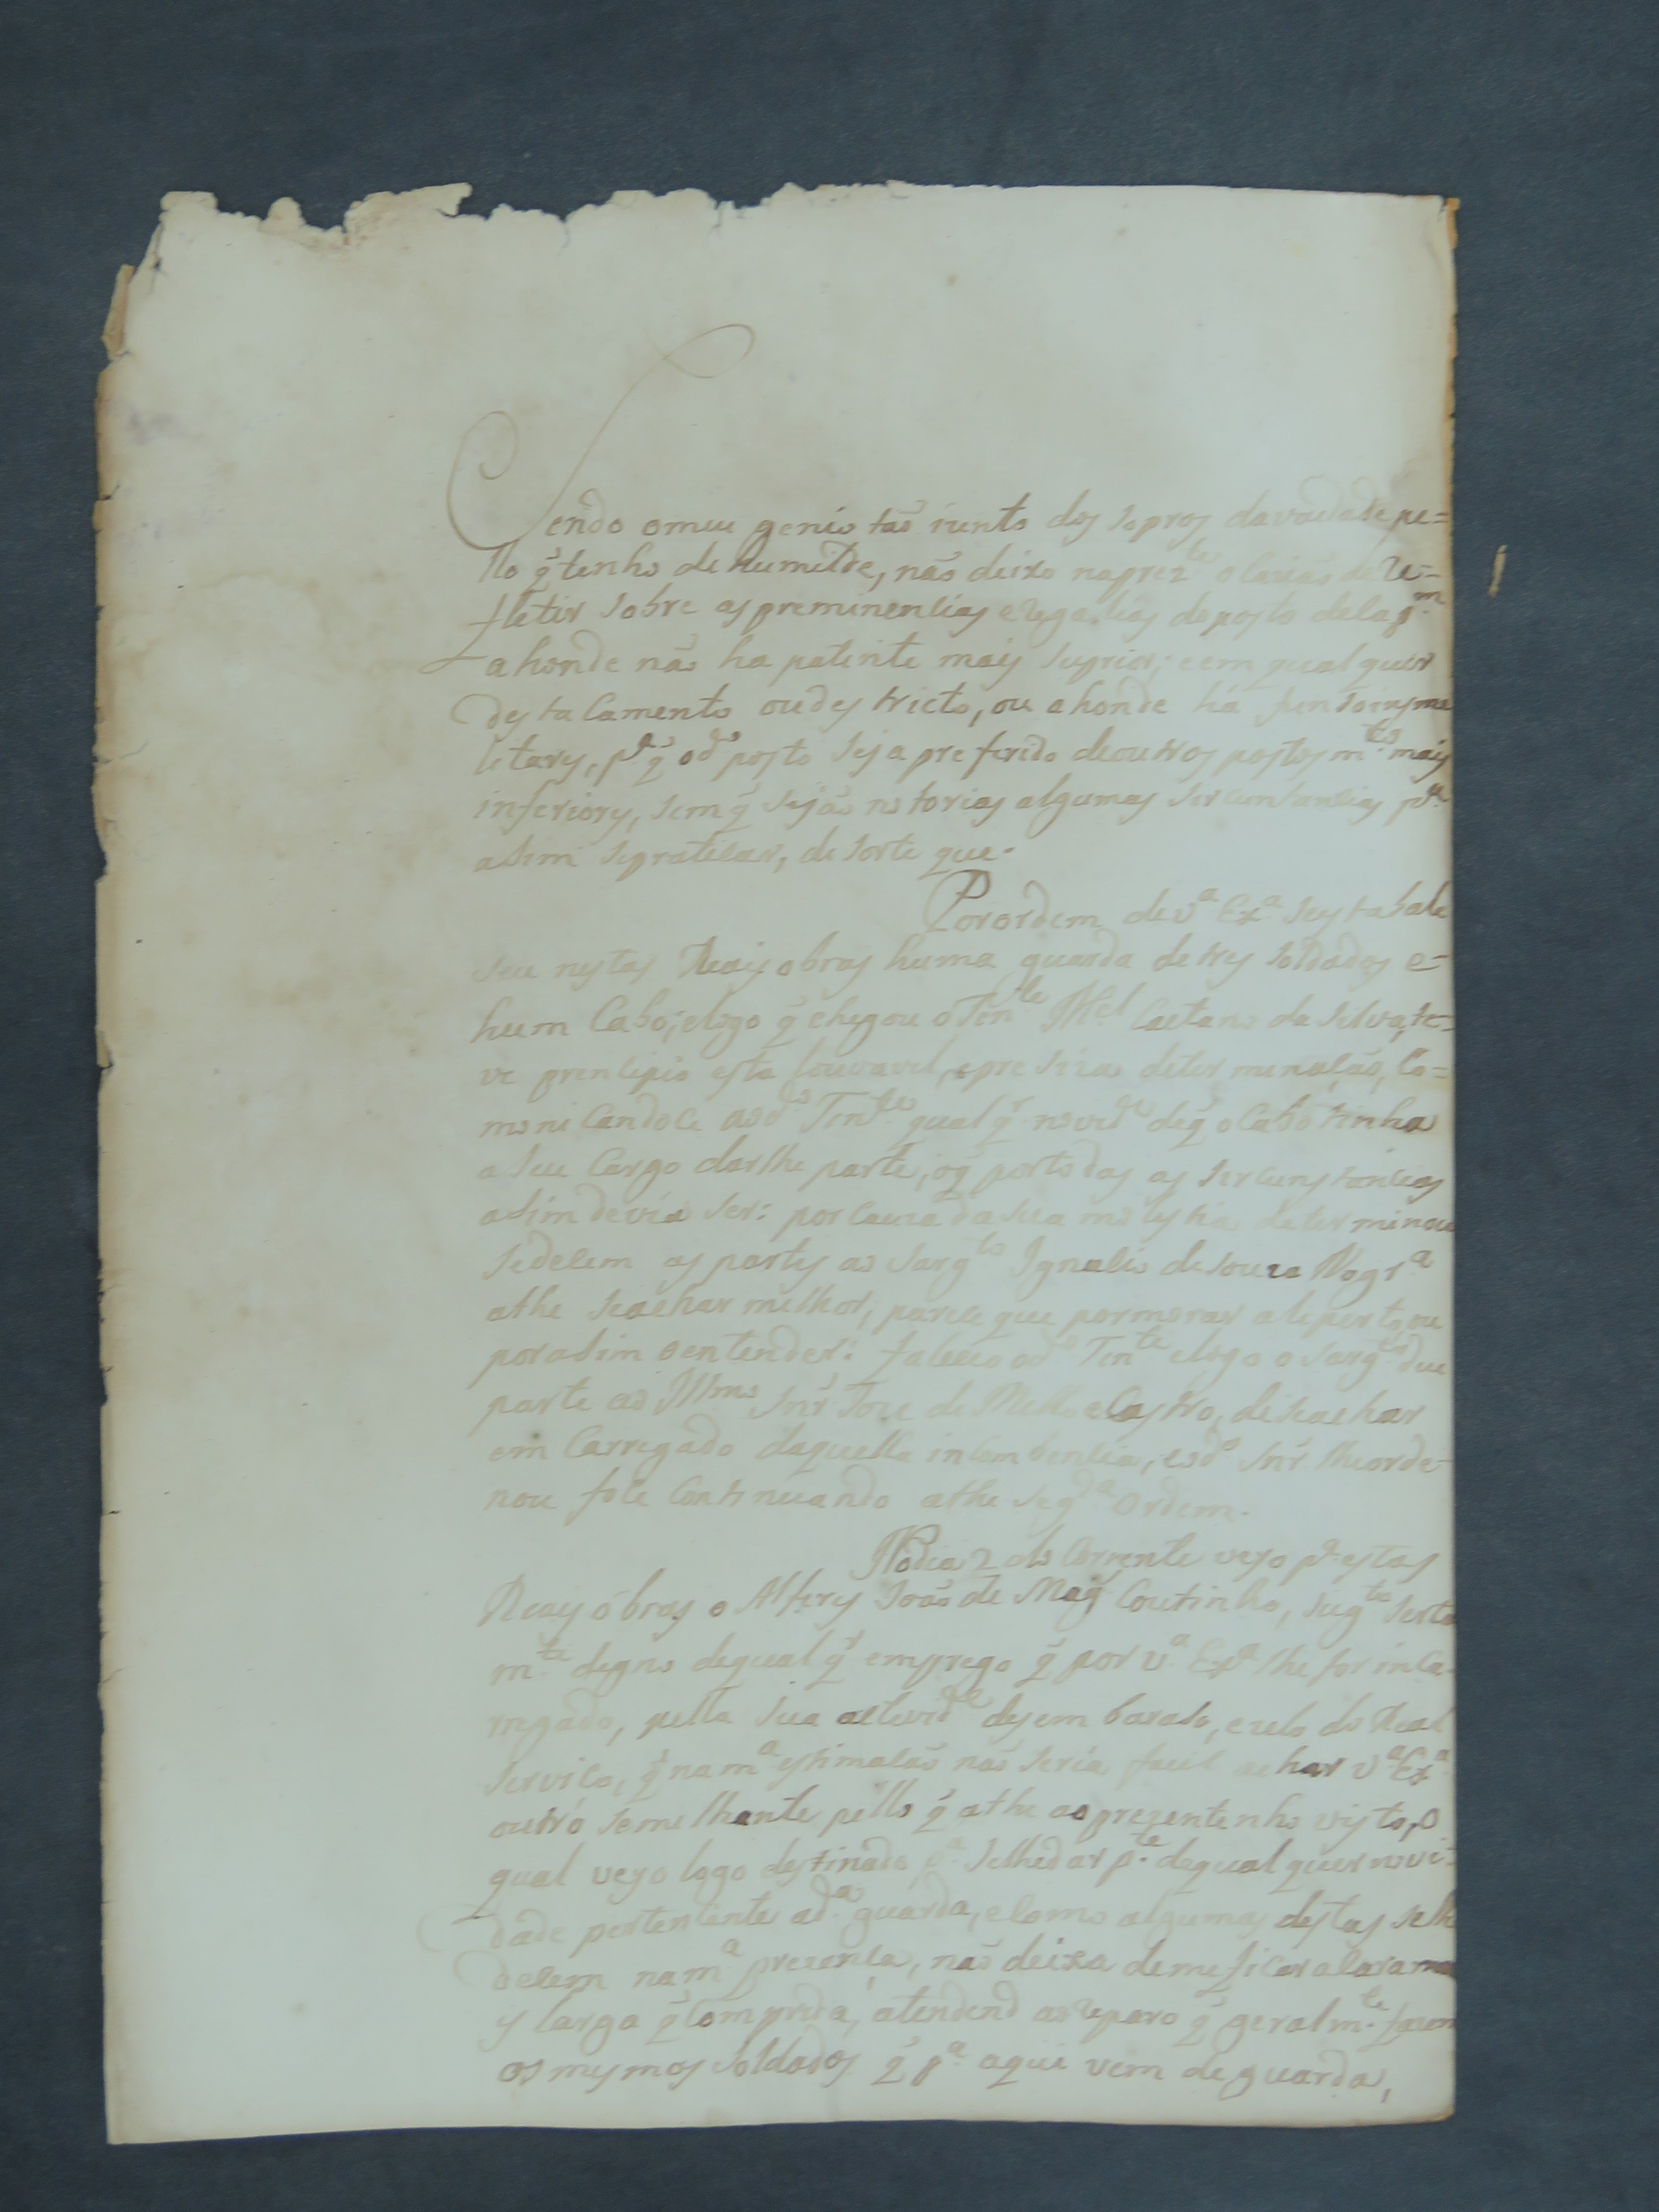 Sendo o meu genio taõ izento dos sopros da vaidade pe=
llo q̃ tenho de humilde, naõ deixo na prez.te ocaziaõ de Re=
fletir sobre as preminencias e regalias do posto de Cap.m
a honde naõ ha patente mais suprior; e em qual quer
destacamento ou destricto, ou a honde há funsoins me
litares, p.a q̃ o d.o posto seja preferido de outros postos m.tos mais
inferiores, sem q̃ sejaõ notorias algumas sercunstancias p.a
asim se praticar, de sorte que.
Por ordem de V.a Ex.a se estabale
seu nestas Reais obras huma guarda de tres soldados e=
hum Cabo; e logo q̃ chegou o Ten.te M.el Caetano da Silva, te=
ve prencipio esta louvavel, e presiza detremenaçaõ, Co=
monicandoce ao d.o Ten.te qual q.r novid.e de q̃ o Cabo tinha
a seu Cargo darlhe parte, o q̃ por todas as sercunstancias
asim devia ser: por cauza da sua molestia determinou
se desem as partes ao Sarg.to Ignacio de Souza Nogr.a
athe se achar milhor, parece que por morar ali perto, ou
por asim o entender: faleceo o d.o Ten.te e logo o Sarg.to deu
parte ao Illmo Snr̃ Joze de Mello e Castro, de se achar
em Carregado daquella incumbencia, e o d.o Snr̃ lhe orde-
nou foce Continuando athe seg.da ordem.
No dia 2 do Corrente veyo p.a estas
Reais óbras o Alferes Joaõ de Mag.es Coutinho, sug.to serta
m.te digno de qual q.r emprego q̃ por V.a Ex.a lhe for inca-
rregado, pella sua actevid.e desembaraso, e zelo do Real
serviço, q̃ na m.a estimaçaõ naõ seria facil achar V.a Ex.a
outro semelhante pello q̃ athe ao prezente tenho visto, o
qual veyo logo destinado p.a se lhe dar p.te de qual quer novi-
dade pertencente a d.a guarda, e como algumas destas se lhe
desem na m.a prezença, naõ deixa de me ficar a cara ma
is larga q̃ Comprida, atendend ao reparo q̃ geralm.te fazem
os mesmos soldados q̃ p.a aqui vem de guarda,